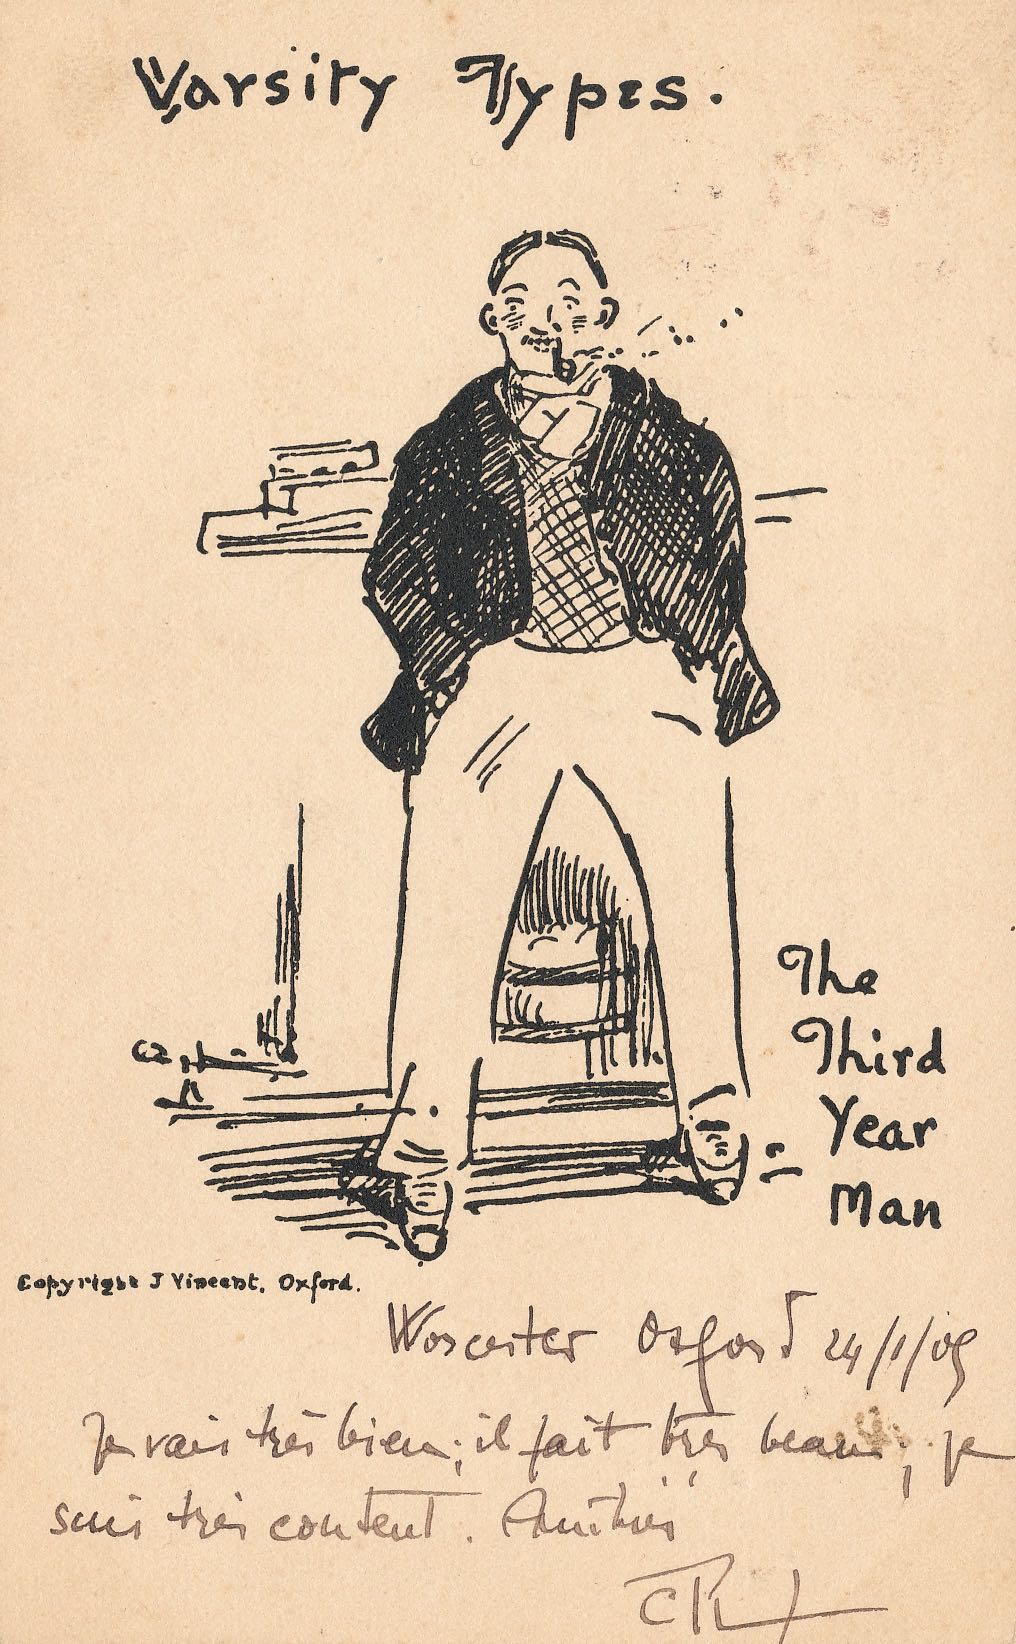 Varsity Types.
The
Third
Year
Man
Copyright J Vincent, Oxford.
Worcester Oxford 24/1/05
Je vais très bien; il fait très beau; je
suis très content. Amitiés